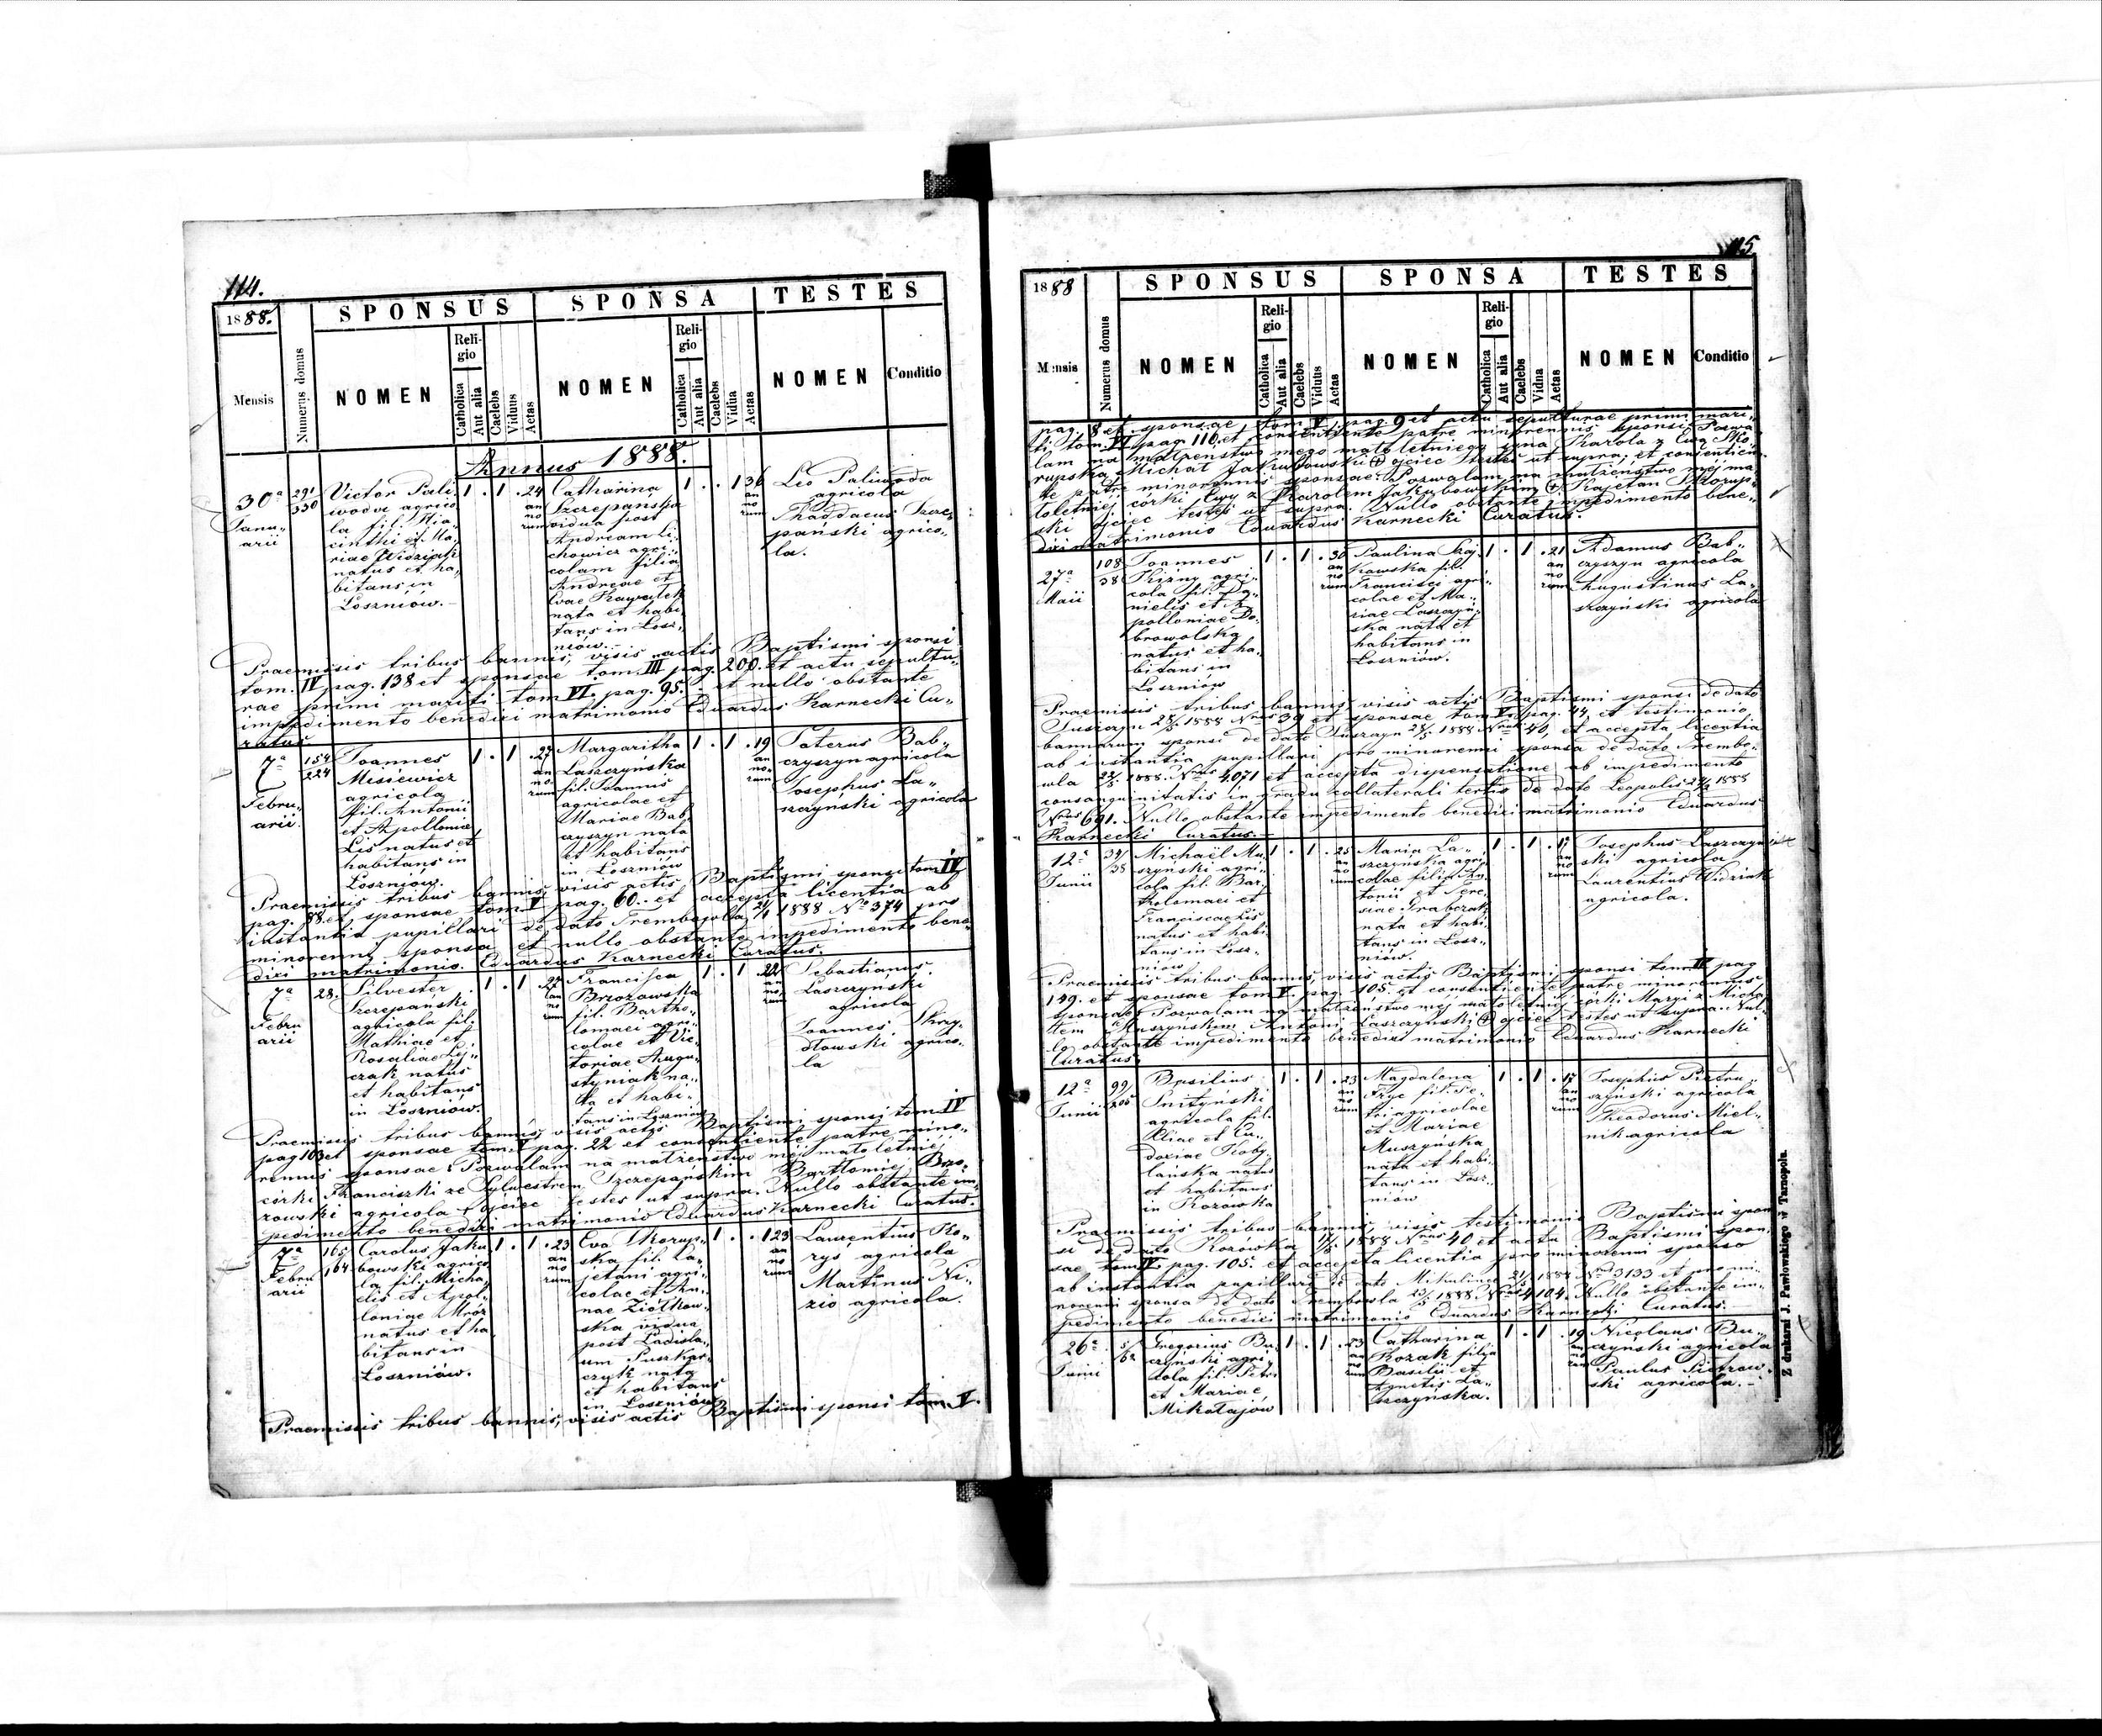 114.
1888.
SPONSUS
SPONSA
TESTES
Mensis
Numerus domus
NOMEN
Religio
Catholica
Aut alia
Caelebs
Viduus
Aetas
NOMEN
Religio
Catholica
Aut alia
Caelebs
Vidua
Aetas
NOMEN
Conditio
Annus 1888.
30a
Janu„
arii
291
330
Victor Pali
woda agrico
la fil. Hia„
cinthi et Ma„
riae Widziak
natus et ha„
bitans in
Łoszniów.
1 . 1 . 24
an
no
rum
Catharina
Szczepańska
vidua post
Andream Li„
chowicz agri„
colam filia
Andreae et
Evae Kawałek
nata et habi
tans in Łosz„
niów.
1 . . 1 36
an
no
rum
Leo Paliwoda
agricola
Thaddaeus Szcze„
pański agrico„
la.
Praemissis tribus bannis, visis actis Baptismi sponsi
tom. IV pag. 138 et sponsae tom. III pag. 200. et actu sepultu„
rae primi mariti tom VI. pag. 95. et nullo obstante
impedimento benedixi matrimonio Eduardus Karnecki Cu„
ratus.
7a
Febru„
arii.
154
224
Joannes
Misiewicz
agricola
fil. Antonii
et Apolloniae
Lis natus et
habitans in
Łoszniów.
1 . 1 . 27
an
no
rum
Margaritha
Laszczyńska
fil. Joannis
agricolae et
Mariae Bab„
czyszyn nata
et habitans
in Łoszniów
1 . 1 . 19
an
no
rum
Paterus Bab„
czyszyn agricola
Josephus La„
szczyński agricola
Praemissis tribus bannis, visis actis Baptismi sponsi tom IV
pag. 88 et sponsae tom V pag. 60. et accepta licentia ab
instantia pupillari de dato Trembowla 21/1 1888 No 374 pro
minorenni sponsa et nullo obstante impedimento bene
dixi matrimonio. Eduardus Karnecki Curatus.
7a
Febru
arii
28.
Silvester
Szczepański
agricola fil.
Mathiae et
Rosaliae Lej„
czak natus
et habitans
in Łoszniów.
1 . 1 . 27
an
no
rum
Francisca
Brzozowska
fil. Bartho„
lomaei agri„
colae et Vic„
toriae Augu„
styniak na„
ta et habi„
tans in Łoszniów
1 . 1 . 22
an
no
rum
Sebastianus
Laszczyński
agricola
Joannes Skrzy„
dłowski agrico„
la
Praemissis tribus bannis, visis actis Baptismi sponsi tom IV
pag 103 et sponsae tom V pag. 22 et consentiente patre mino„
rennis sponsae: Pozwalam na małżeństwo méj małoletniéj
córki Franciszki ze Sylwestrem Szczepańskim Bartłomiej Brzo„
zowski agricola ojciec testes ut supra. Nullo obstante im„
pedimento benedixi matrimonio Eduardus Karnecki Curatus.
7a
Febru
arii
165
164
Carolus Jaku
bowski agrico
la fil. Micha„
elis et Apol„
loniae Mróz
natus et ha
bitans in
Łoszniów.
1 . 1 . 23
an
no
rum
Eva Skorup„
ska fil. Ca„
jetani agri„
colae et An„
nae Ziółkow„
ska vidua
post Ladisla„
um Puszkar„
czyk nata
et habitans
in Łoszniów
1 . . 1 23
an
no
rum
Laurentius Ko„
rys agricola
Martinus Ni„
zio agricola.
Praemissis tribus bannis, visis actis Baptismi sponsi tom V.
115
1888
SPONSUS
SPONSA
TESTES
Mensis
Numerus domus
NOMEN
Religio
Catholica
Aut alia
Caelebs
Viduus
Aetas
NOMEN
Religio
Catholica
Aut alia
Caelebs
Vidua
Aetas
NOMEN
Conditio
pag. 8 et sponsae tom V pag. 9 et actu sepulturae primi mari„
ti tom. VI pag. 110 et consentiente patre minorennis sponsi: Pozwa
lam na małżeństwo mego małoletniego syna Karola z Ewą Sko„
rupską Michał Jakubowski ojciec testes ut supra, et consentien„
te patre minorennis sponsae: Pozwalam na małżeństwo méj ma
łoletniéj córki Ewy z Karolem Jakubowskim Kajetan Skorup„
ski ojciec testes ut supra. Nullo obstante impedimento bene„
dixi matrimonio Eduardus Karnecki Curatus.
27a
Maii
108
38
Joannes
Hizny agri„
cola fil. Da„
nielis et A„
polloniae Do„
browolska
natus et ha„
bitans in
Łoszniów
1 . 1 . 30
an
no
rum
Paulina Szaj
kowska fil.
Francisci agri„
colae et Ma„
riae Laszczyń„
ska nata et
habitans in
Łoszniów.
1 . 1 . 21
an
no
rum
Adamus Bab„
czyszyn agricola
Augustinus La„
szczyński agricola
Praemissis tribus bannis, visis actis Baptismi sponsi de dato
1888 Nrus 39 et sponsae tom V pag. 44, et testimonio
bannorum sponsi de dato 1888 Nrus 40, et accepta licentia
ab instantia pupillari pro minorenni sponsa de dato Trembo„
wla 1888 Nrus 4071 et accepta dispensatione ab impedimento
consanguinitatis in gradu collaterali tertio de dato Leopolis 1888
Nrus 691. Nullo obstante impedimento benedixi matrimonio Eduardus
Karnecki Curatus.
12a
Junii
34/
38
Michaël Mu„
szyński agri„
cola fil. Bar„
tholomaei et
Franciscae Lis
natus et habi
tans in Łosz„
niów
1 . 1 . 25
an
no
rum
Maria La„
szczyńska agri
colae filia An„
tonii et Tere„
siae Grabczak
nata et habi„
tans in Łosz„
niów.
1 . 1 . 17
an
no
rum
Josephus Laszczyń
ski agricola
Laurentius Widziak
agricola.
Praemissis tribus bannis, visis actis Baptismi sponsi tom IV pag
149. et sponsae tom V. pag. 105. et consentiente patre minorennis
sponsae: Pozwalam na małżeństwo méj małoletniéj córki Maryi z Micha
łem Muszyńskim Antoni Laszczyński ojciec testes ut supra. Nul„
lo obstante impedimento benedixi matrimonio Eduardus Karnecki
Curatus.
12a
Junii
99/
205
Basilius
Snityński
agricola fil.
Eliae et Eu„
doxiae Koby„
lańska natus
et habitans
in Kozówka
1 . 1 . 23
an
no
rum
Magdalena
Fryc fil. Pe„
tri agricolae
et Mariae
Muszyńska
nata et habi
tans in Łosz„
niów
1 . 1 . 17
an
no
rum
Josephus Pietru„
szyński agricola
Theodorus Miel„
nik agricola
Praemissis tribus bannis, visis testimonio Baptismi spon
si de dato Kozówka 1888 Nrus 40 et actu Baptismi spon„
sae tom IV pag. 105. et accepta licentia pro minorenni sponso
ab instantia pupillari de dato Mikulince 1888 Nrus 3133 et pro mi„
norenni sponsa de dato Trembowla 1888 Nrus 4104. Nullo obstante im„
pedimento benedixi matrimonio Eduardus Karnecki Curatus.
26a
Junii
5/
62
Gregorius Bu„
czyński agri„
cola fil. Petri
et Mariae
Mikołajów
1 . 1 . 23
an
no
rum
Catharina
Kozak filia
Basilii et
Agnetis La„
szczyńska.
1 . 1 . 19
an
no
rum
Nicolaus Bu„
czyński agricola
Paulus Pietrow„
ski agricola.
Z drukarni J. Pawłowskiego w Tarnopolu.